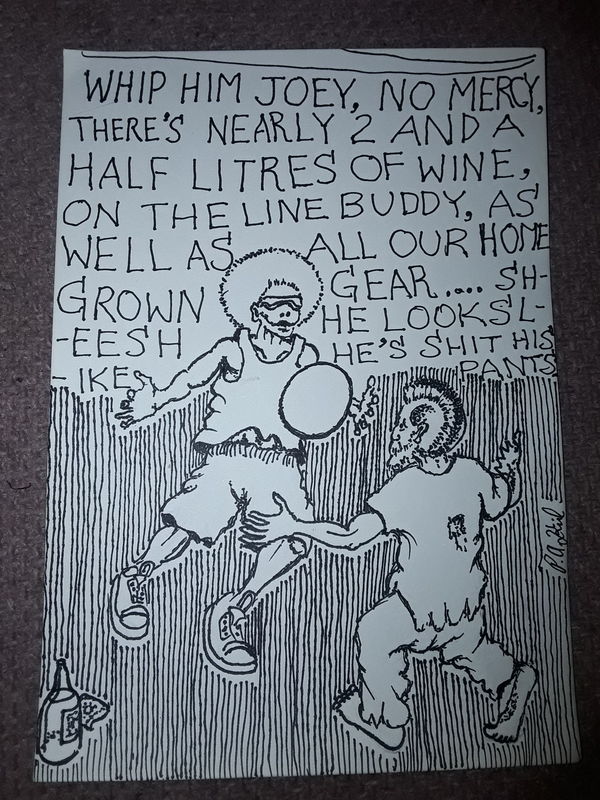 WHIP HIM JOEY, NO MERCY,
THERE'S NEARLY 2 AND A
HALF LITRES OF WINE,
ON THE LINE BUDDY, AS
WELL AS ALL OUR HOME
GROWN GEAR.... SH-
-EESH HE LOOKS L-
-IKE HE'S SHIT HIS
PANTS